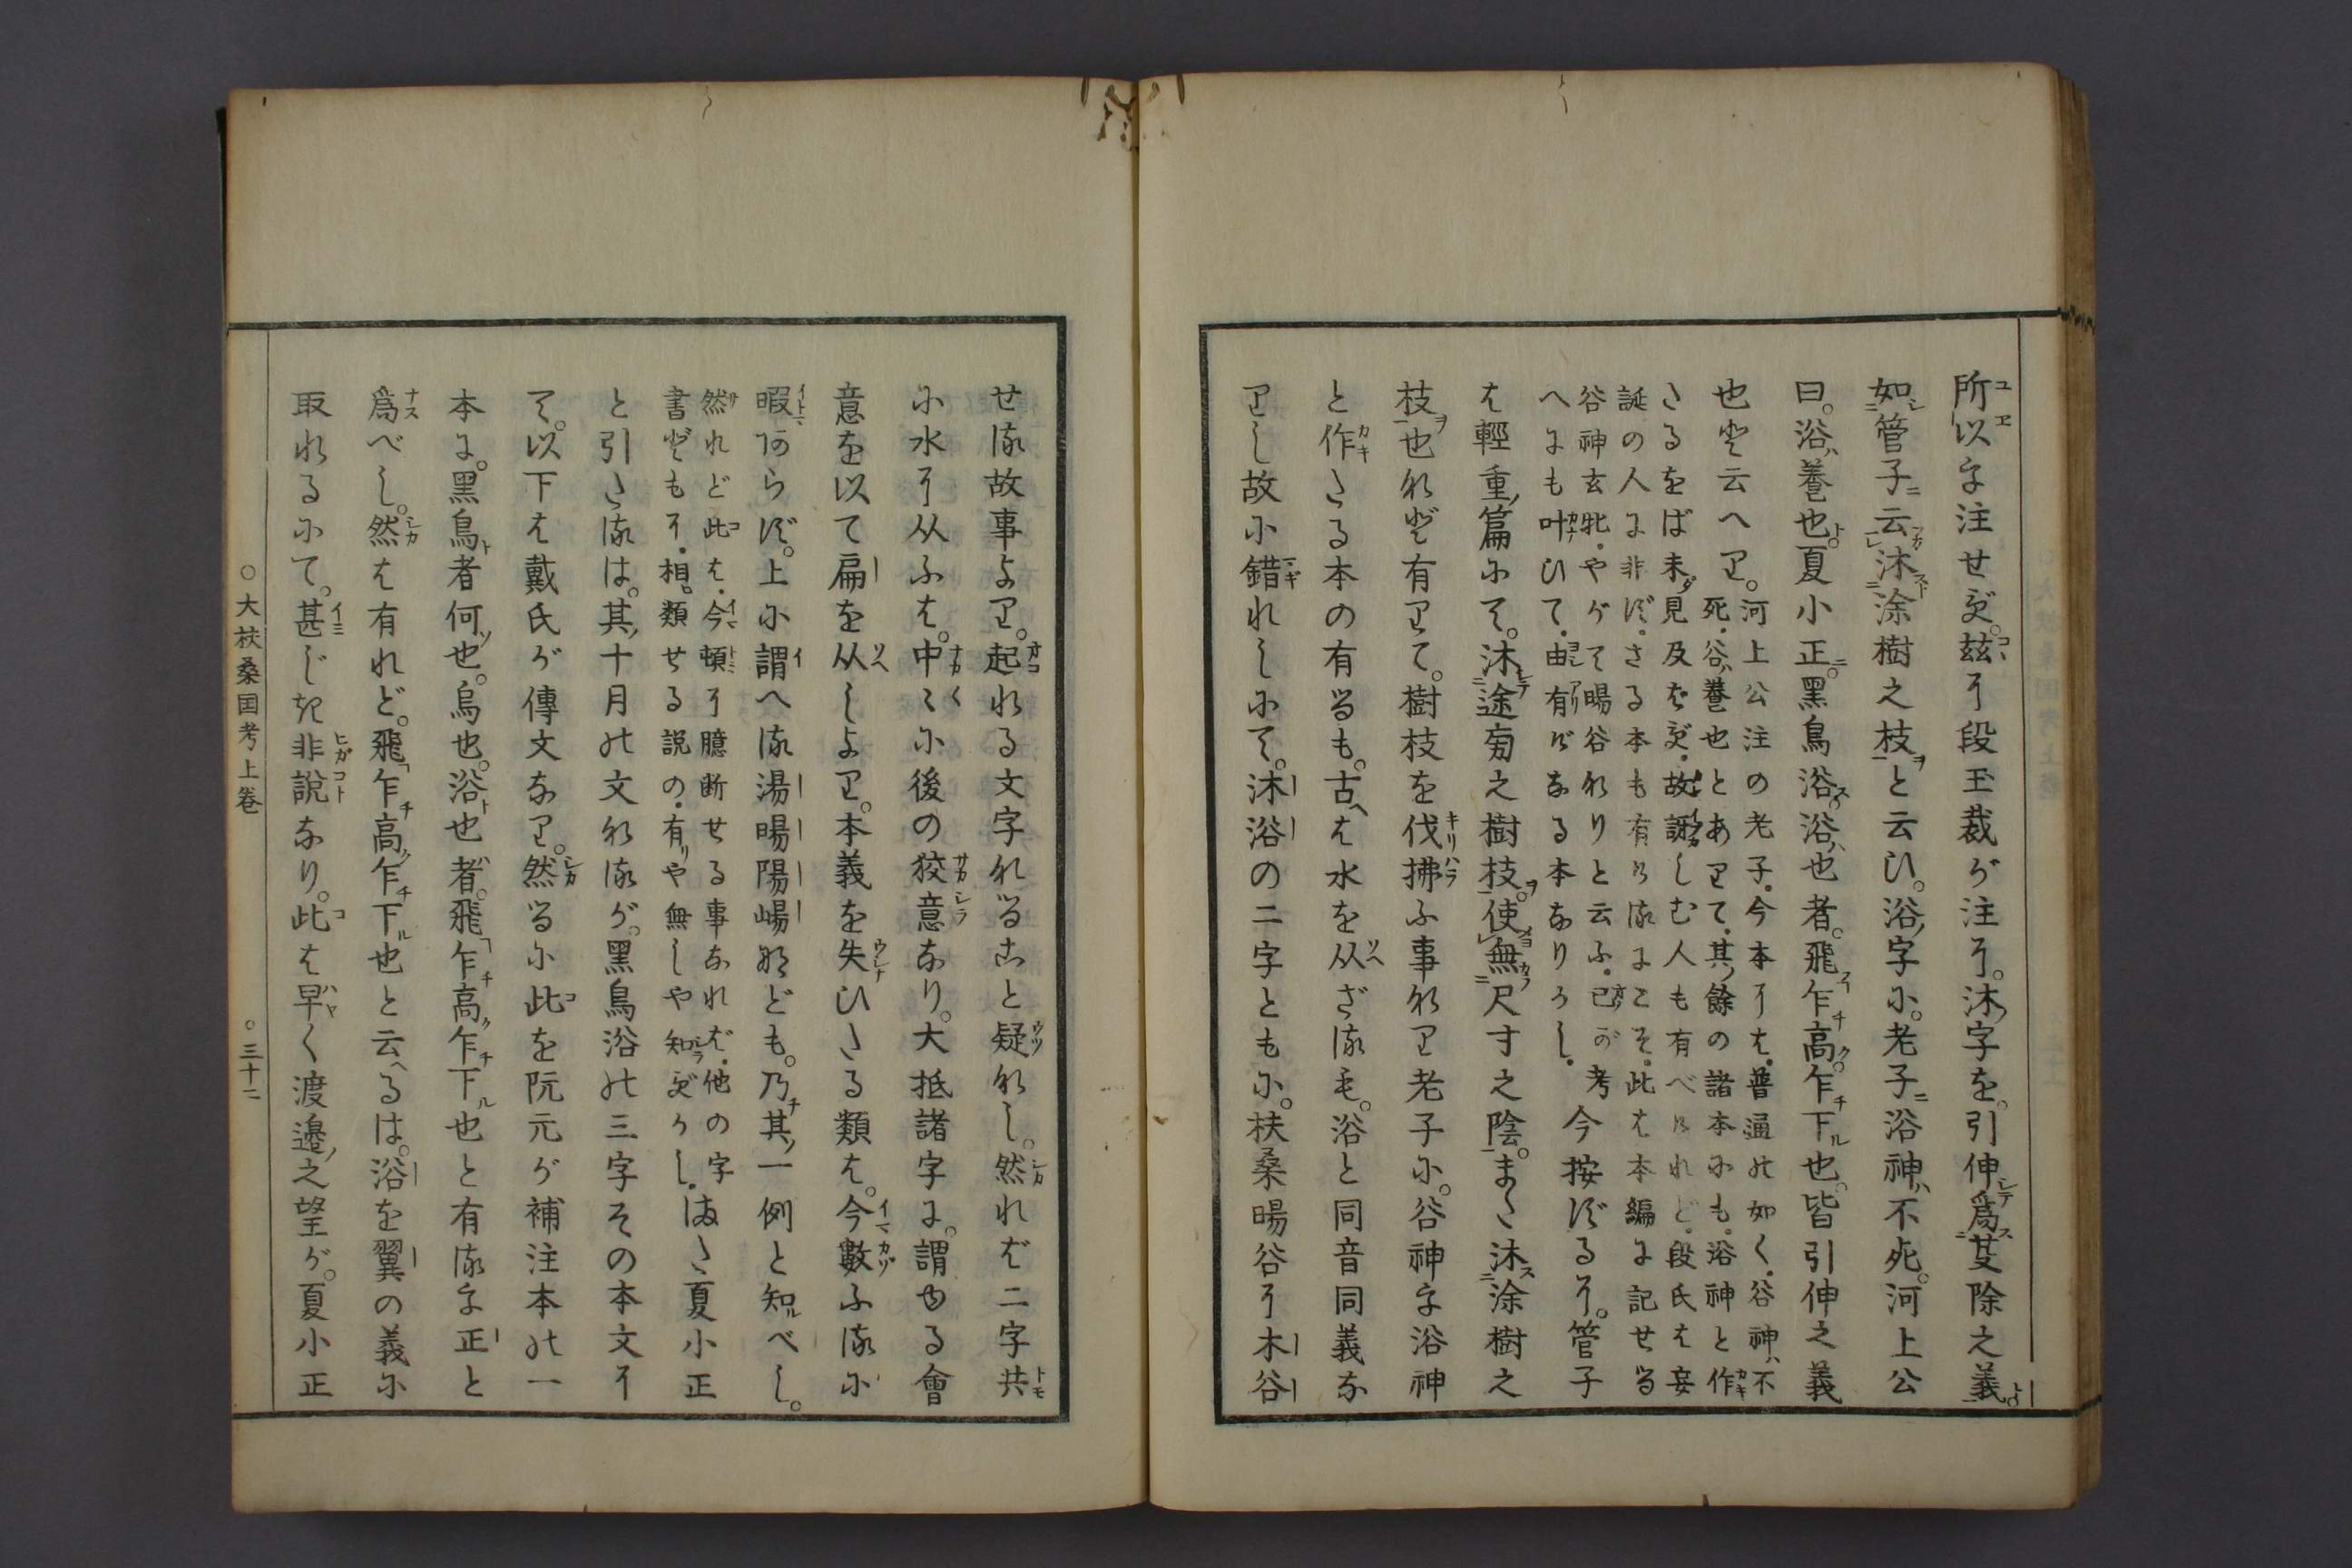 所以を注せず。玆に段玉裁が注に。沐字を。引伸爲芟除之義
如管子云沐涂樹之枝と云ひ。浴字に。老子浴神不死。河上公
曰。浴養也。夏小正。黑鳥浴。浴也者。飛乍高乍下也。皆引伸之義
也と云へり。河上公注の老子今本には普通の如く谷神不
死谷養也とありて其餘の諸本にも浴神と作
たるをば未見及ばず故誣しむ人も有べけれど段氏は妄
誕の人に非ずさる本も有ける にこそ此は本編に記せる
谷神玄牝やがて暘谷なりと云ふ己が考
へにも叶ひて由有げなる本なりかし
今按ずるに。管子
は輕重篇にて。沐途旁之樹枝。使無尺寸之陰。また沐涂樹之
枝也など有りて。樹枝を伐拂ふ事なり老子に。谷神を浴神
と作たる本の有るも。古は水を从ざるも。浴と同音同義な
りし故に錯れしにて。沐浴の二字ともに。扶桑暘谷に木谷
せる故事より。起れる文字なること疑なし。然れば二字共
に水に从ふは。中々に後の狡意なり。大抵諸字に。謂ゆる會
意を以て扁を从しより。本義を失ひたる類は。今數ふるに
暇あらず。上に謂へる湯暘陽崵なども。乃其一例と知べし。
然れど此は今頓に臆断せる事なれば他の字
書どもに相類せる説の有や無しや知ずかし
また夏小正
と引たるは。其十月の文なるが。黑鳥浴の三字その本文に
て。以下は戴氏が傳文なり。然るに此を阮元が補注本の一
本に。黑鳥者何也。烏也。浴也者。飛乍高乍下也と有るを正と
爲べし。然は有れど。飛乍高乍下也と云るは。浴を翼の義に
取れるにて。甚じき非說なり。此は早く渡邉之望が。夏小正
○大扶桑国考上巻
○三十二